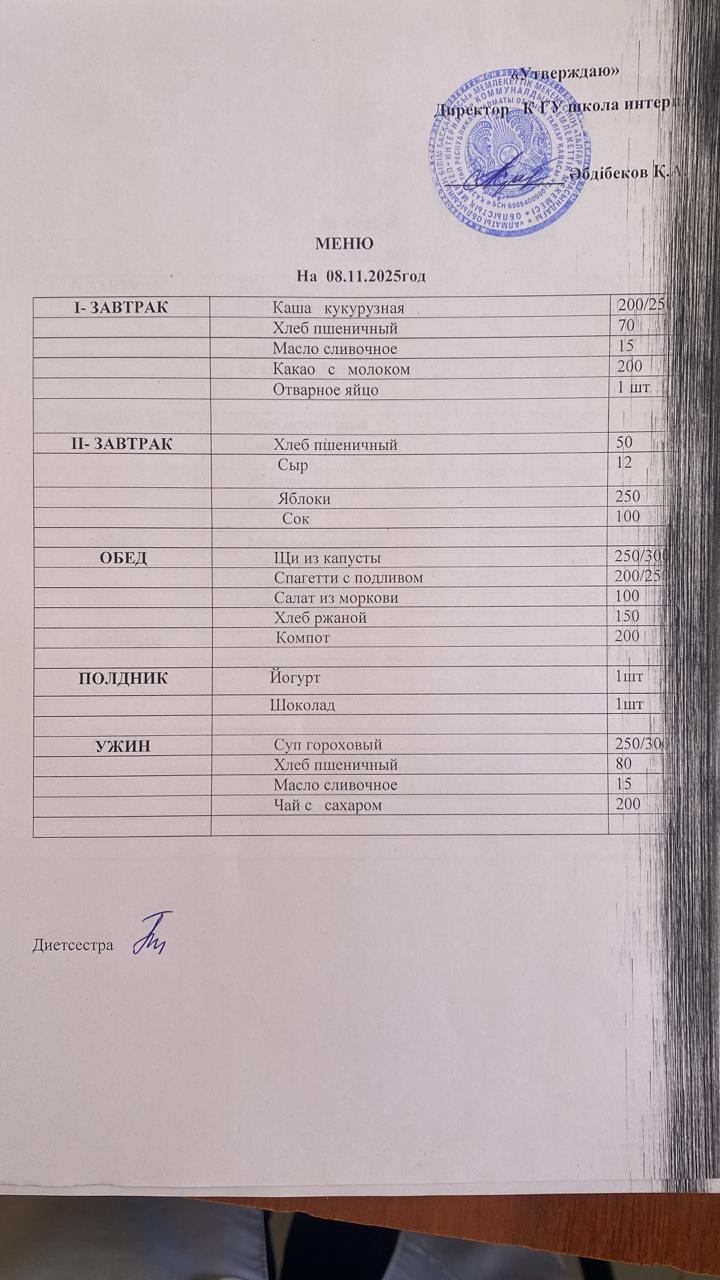 «Утверждаю»
Директор К ГУ школа интерн
Әбдібеков Қ.А
МЕНЮ
На 08.11.2025год
I- ЗАВТРАК Каша кукурузная 200/250
Хлеб пшеничный 70
Масло сливочное 15
Какао с молоком 200
Отварное яйцо 1 шт
II- ЗАВТРАК Хлеб пшеничный 50
Сыр 12
Яблоки 250
Сок 100
ОБЕД Щи из капусты 250/300
Спагетти с подливом 200/250
Салат из моркови 100
Хлеб ржаной 150
Компот 200
ПОЛДНИК Йогурт 1шт
Шоколад 1шт
УЖИН Суп гороховый 250/300
Хлеб пшеничный 80
Масло сливочное 15
Чай с сахаром 200
Диетсестра